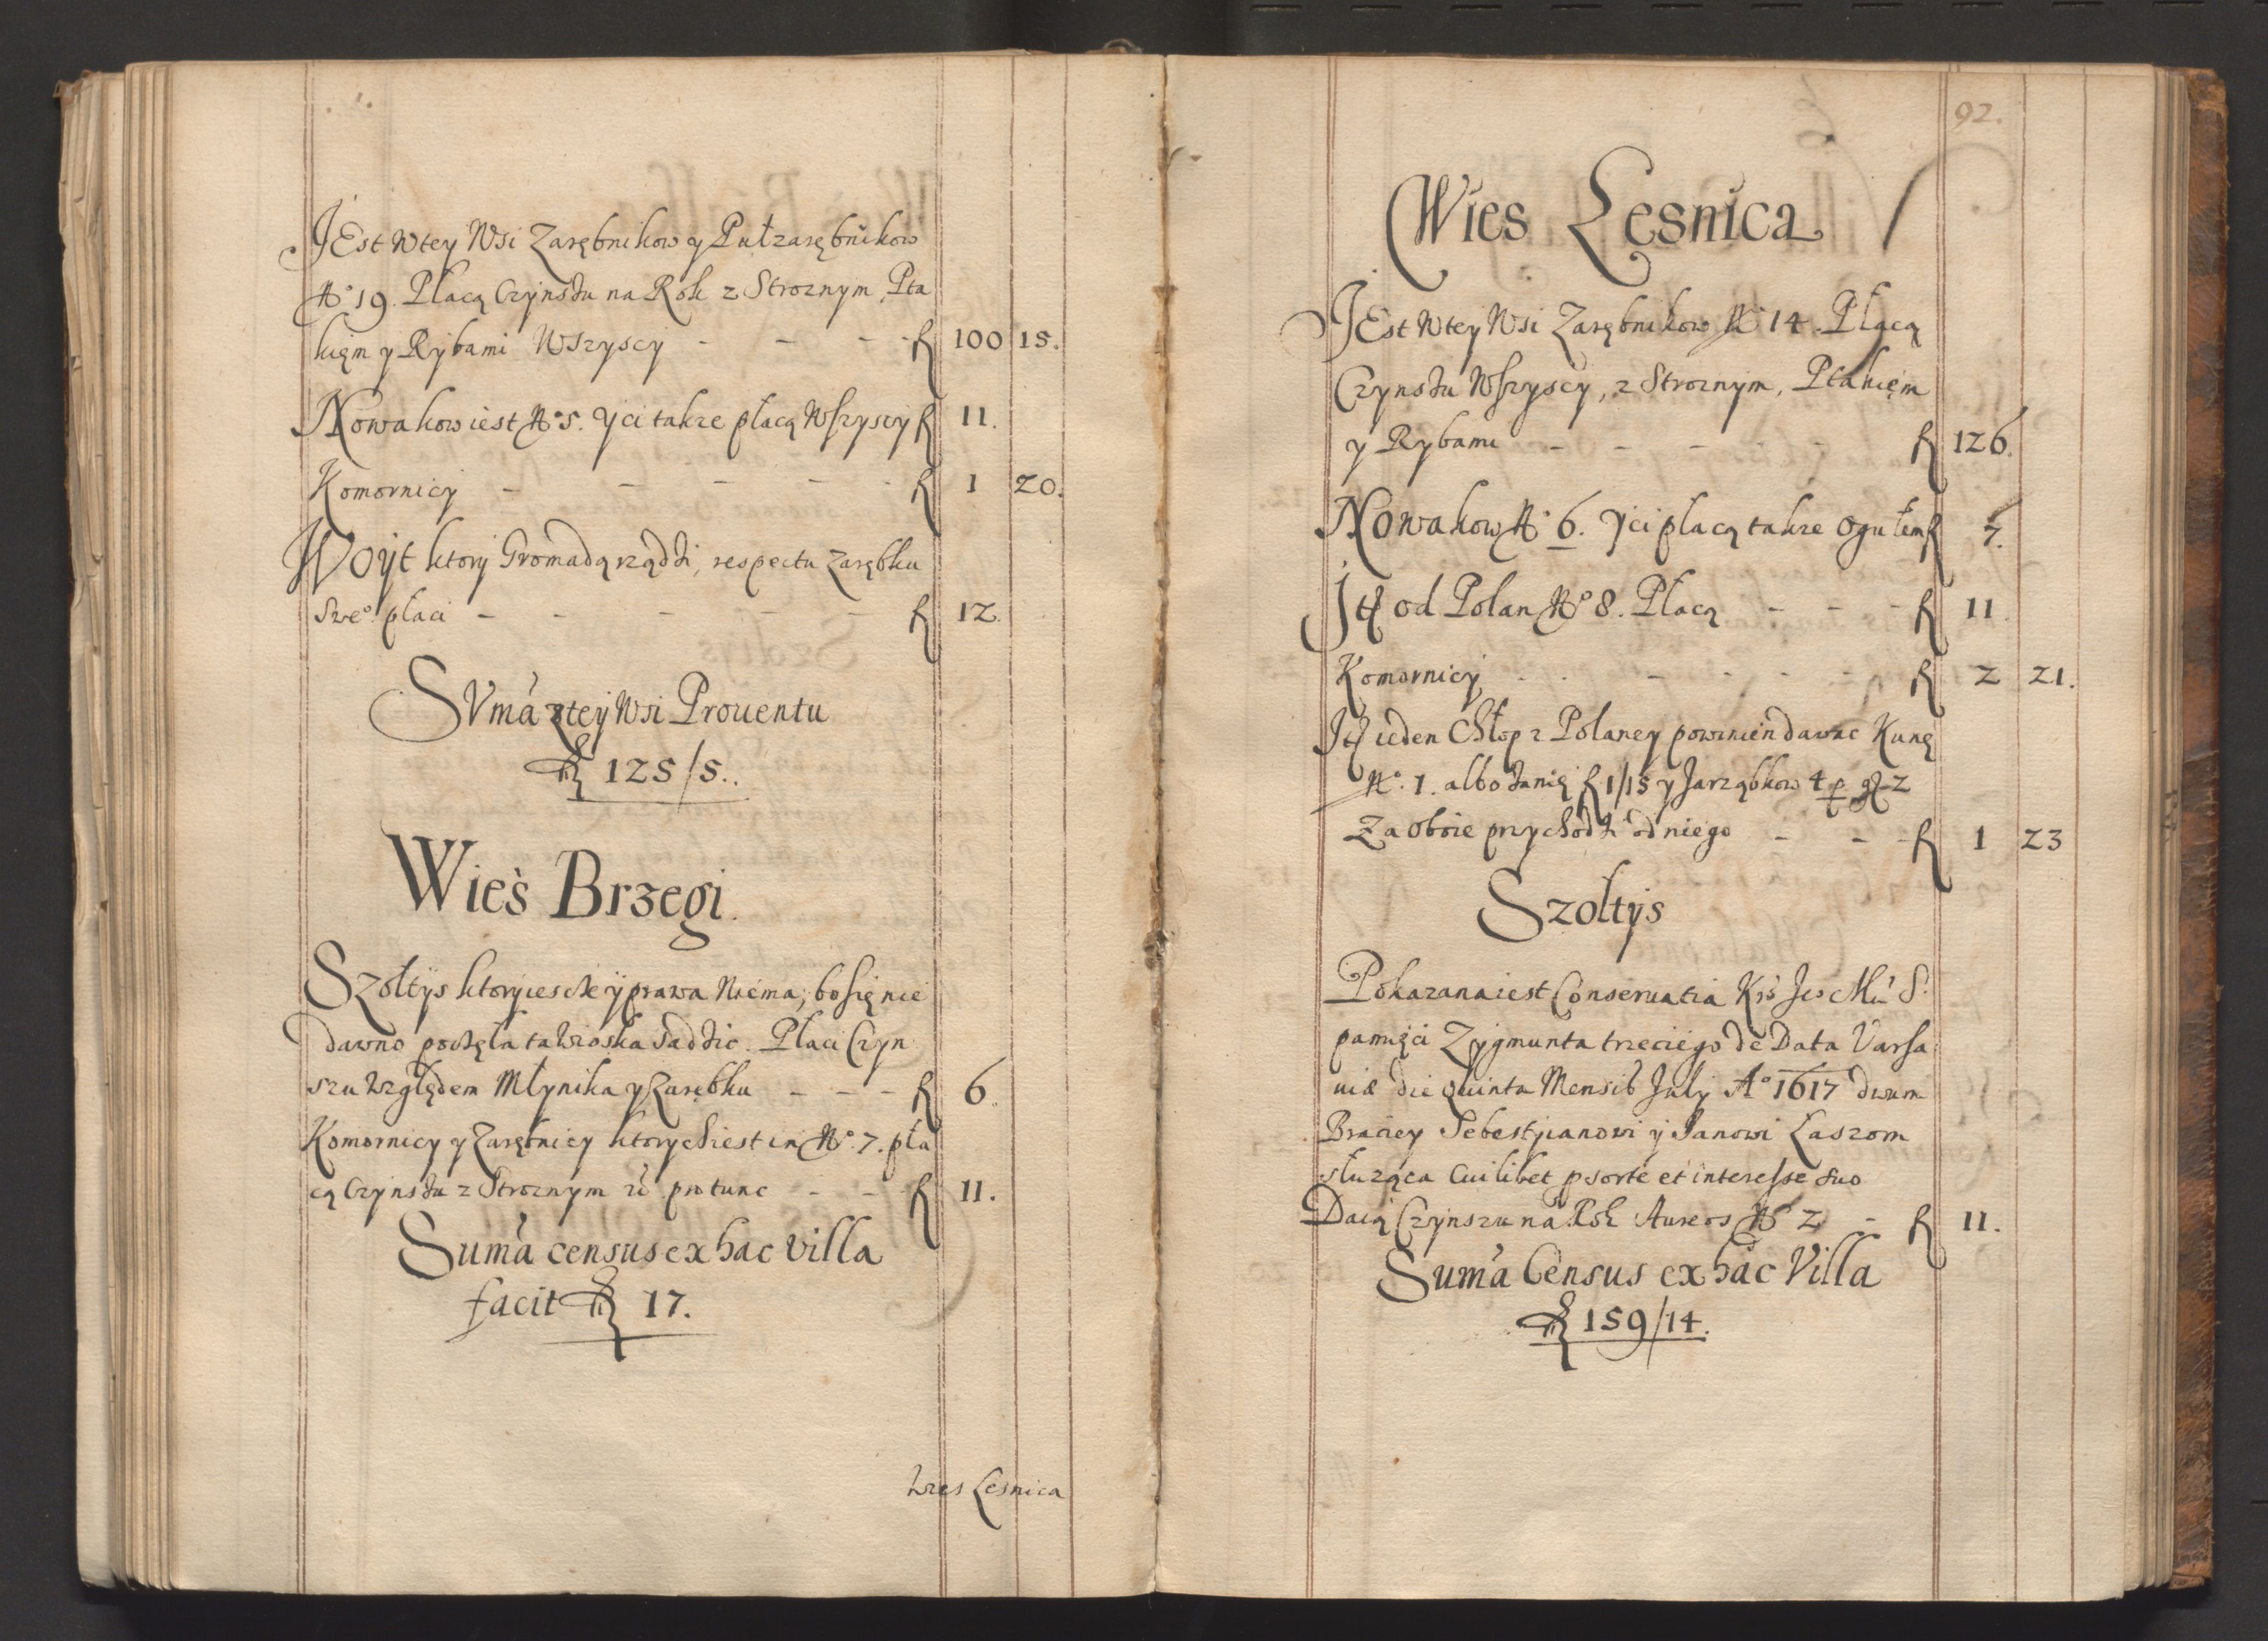 JEst wtey Wsi Zarębnikow y Pułzarębnikow
No 19. Płacą Czynszu na Rok z Stroznym, Pta
kięm y Rybami Wszyscy - - - - fl 100 15.
Nowakow iest No 5. Yci takze płacą Wszyscy fl 11.
Komornicy - - - - - fl 1 20.
Woÿt ktory Gromadą rządzi, respectu Zarębku
Swe° płaci - - - - - fl 12.
SVma ztey Wsi Prouentu
fl 125/5..
Wieś Brzegi.
Szołtÿs ktory ieszcze ÿ prawa Niema, bo się nie
dawno poczęła ta wioska sadzic. Płaci Czyn
szu względem Młynika y Zarębku - - - fl 6.
Komornicy y Zarębnicy ktorych iest in No. 7. pła
cą Czynszu z Stroznym ut pro tunc - - - fl 11.
Suma census ex hac villa
facit fl 17.
wies Lesnica
92.
Wies Lesnica
JEst wtey Wsi Zarębnikow No 14. Płacą
Czynszu Wszyscy, z Stroznym, Ptakięm
y Rybami - - - - - fl 126.
Nowakow No 6. Yci płacą takze Ogułem fl 7.
Jt od Polan No 8. Płacą - - - fl 11.
Komornicy - - - - - - fl 2 21.
Jt ieden Chłop z Polaney powinien dawac Kunę
No. 1. albo zanię fl 1/15 y Jarząbkow 4 p. gr 2
Za oboie przychodzi od niego - - - fl 1 23
Szołtÿs
Pokazana iest Conseruatia Kro Jeo Mci S.
pamięci Zygmunta trzeciego de Data Varsa
uiæ die quinta Mensis July A° 1617 dwum
Braciey Sebestyianowi ÿ Janowi Łaszom
służąca cuilibet p sorte et interesse suo
Daią Czynszu na Rok Aureos No 2 - fl 11.
Suma Census ex hac Villa
fl 159/14.